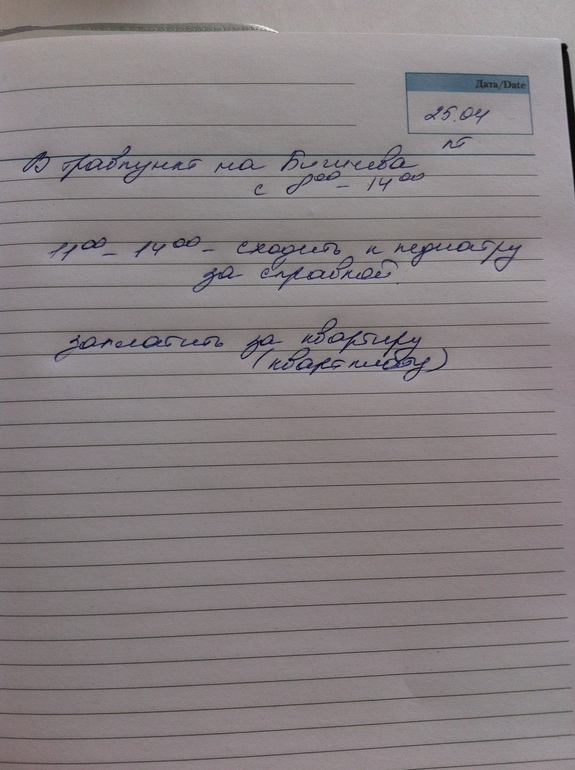 Дата/Date
25.04
пт
В травпункт на Бигичева
с 8⁰⁰ – 14⁰⁰
11⁰⁰ – 14⁰⁰ – сходить к педиатру
за справкой.
заплатить за квартиру
(квартплату)